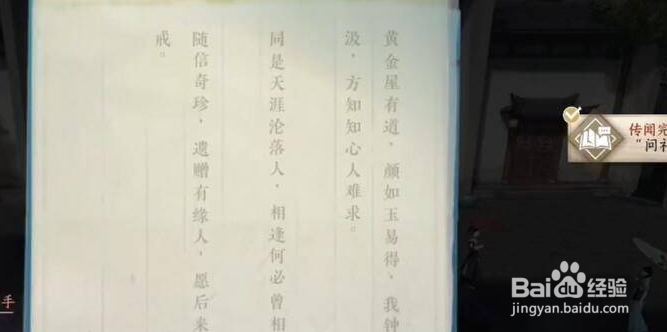 黄金屋有道，颜如玉易得，我钟
汲，方知知心人难求。
同是天涯沦落人，相逢何必曾相
随信奇珍，遗赠有缘人，愿后来
戒。
传闻完
“问礼
手
Bai du 经验
jingyan.baidu.com